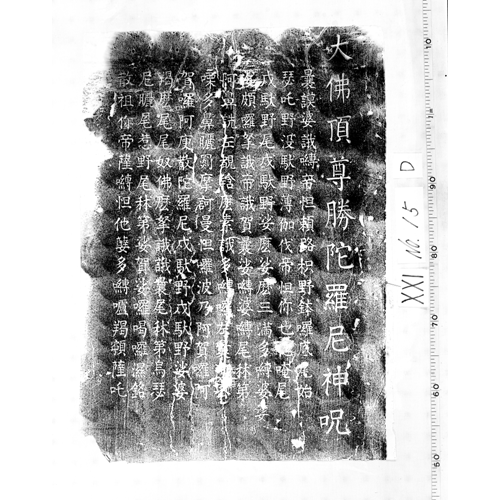 大佛頂尊勝陀羅尼神呪
曩謨婆誐嚩帝怛賴路枳野鉢囉底尾始
瑟吒野没馱野薄伽伐帝怛你也他唵尾
戍馱野尾戍馱野娑麽娑麽三滿多嚩婆娑
頗囉拏誐帝誐賀曩娑嚩婆嚩尾秫第
阿毗詵左覩麽素誐多嚩
多鼻曬罽摩訶曼怛囉波乃阿賀囉阿
賀囉阿庾散陀羅尼戍馱野戍馱野娑婆
尾尾奴佛麽拏誐誐曩尾秫第烏瑟
尼曬尾惹野尾秫第娑賀娑囉喝囉濕銘
散祖你帝薩嚩怛他蘖多嚩嚧羯薩吒
XXI No. 15 D